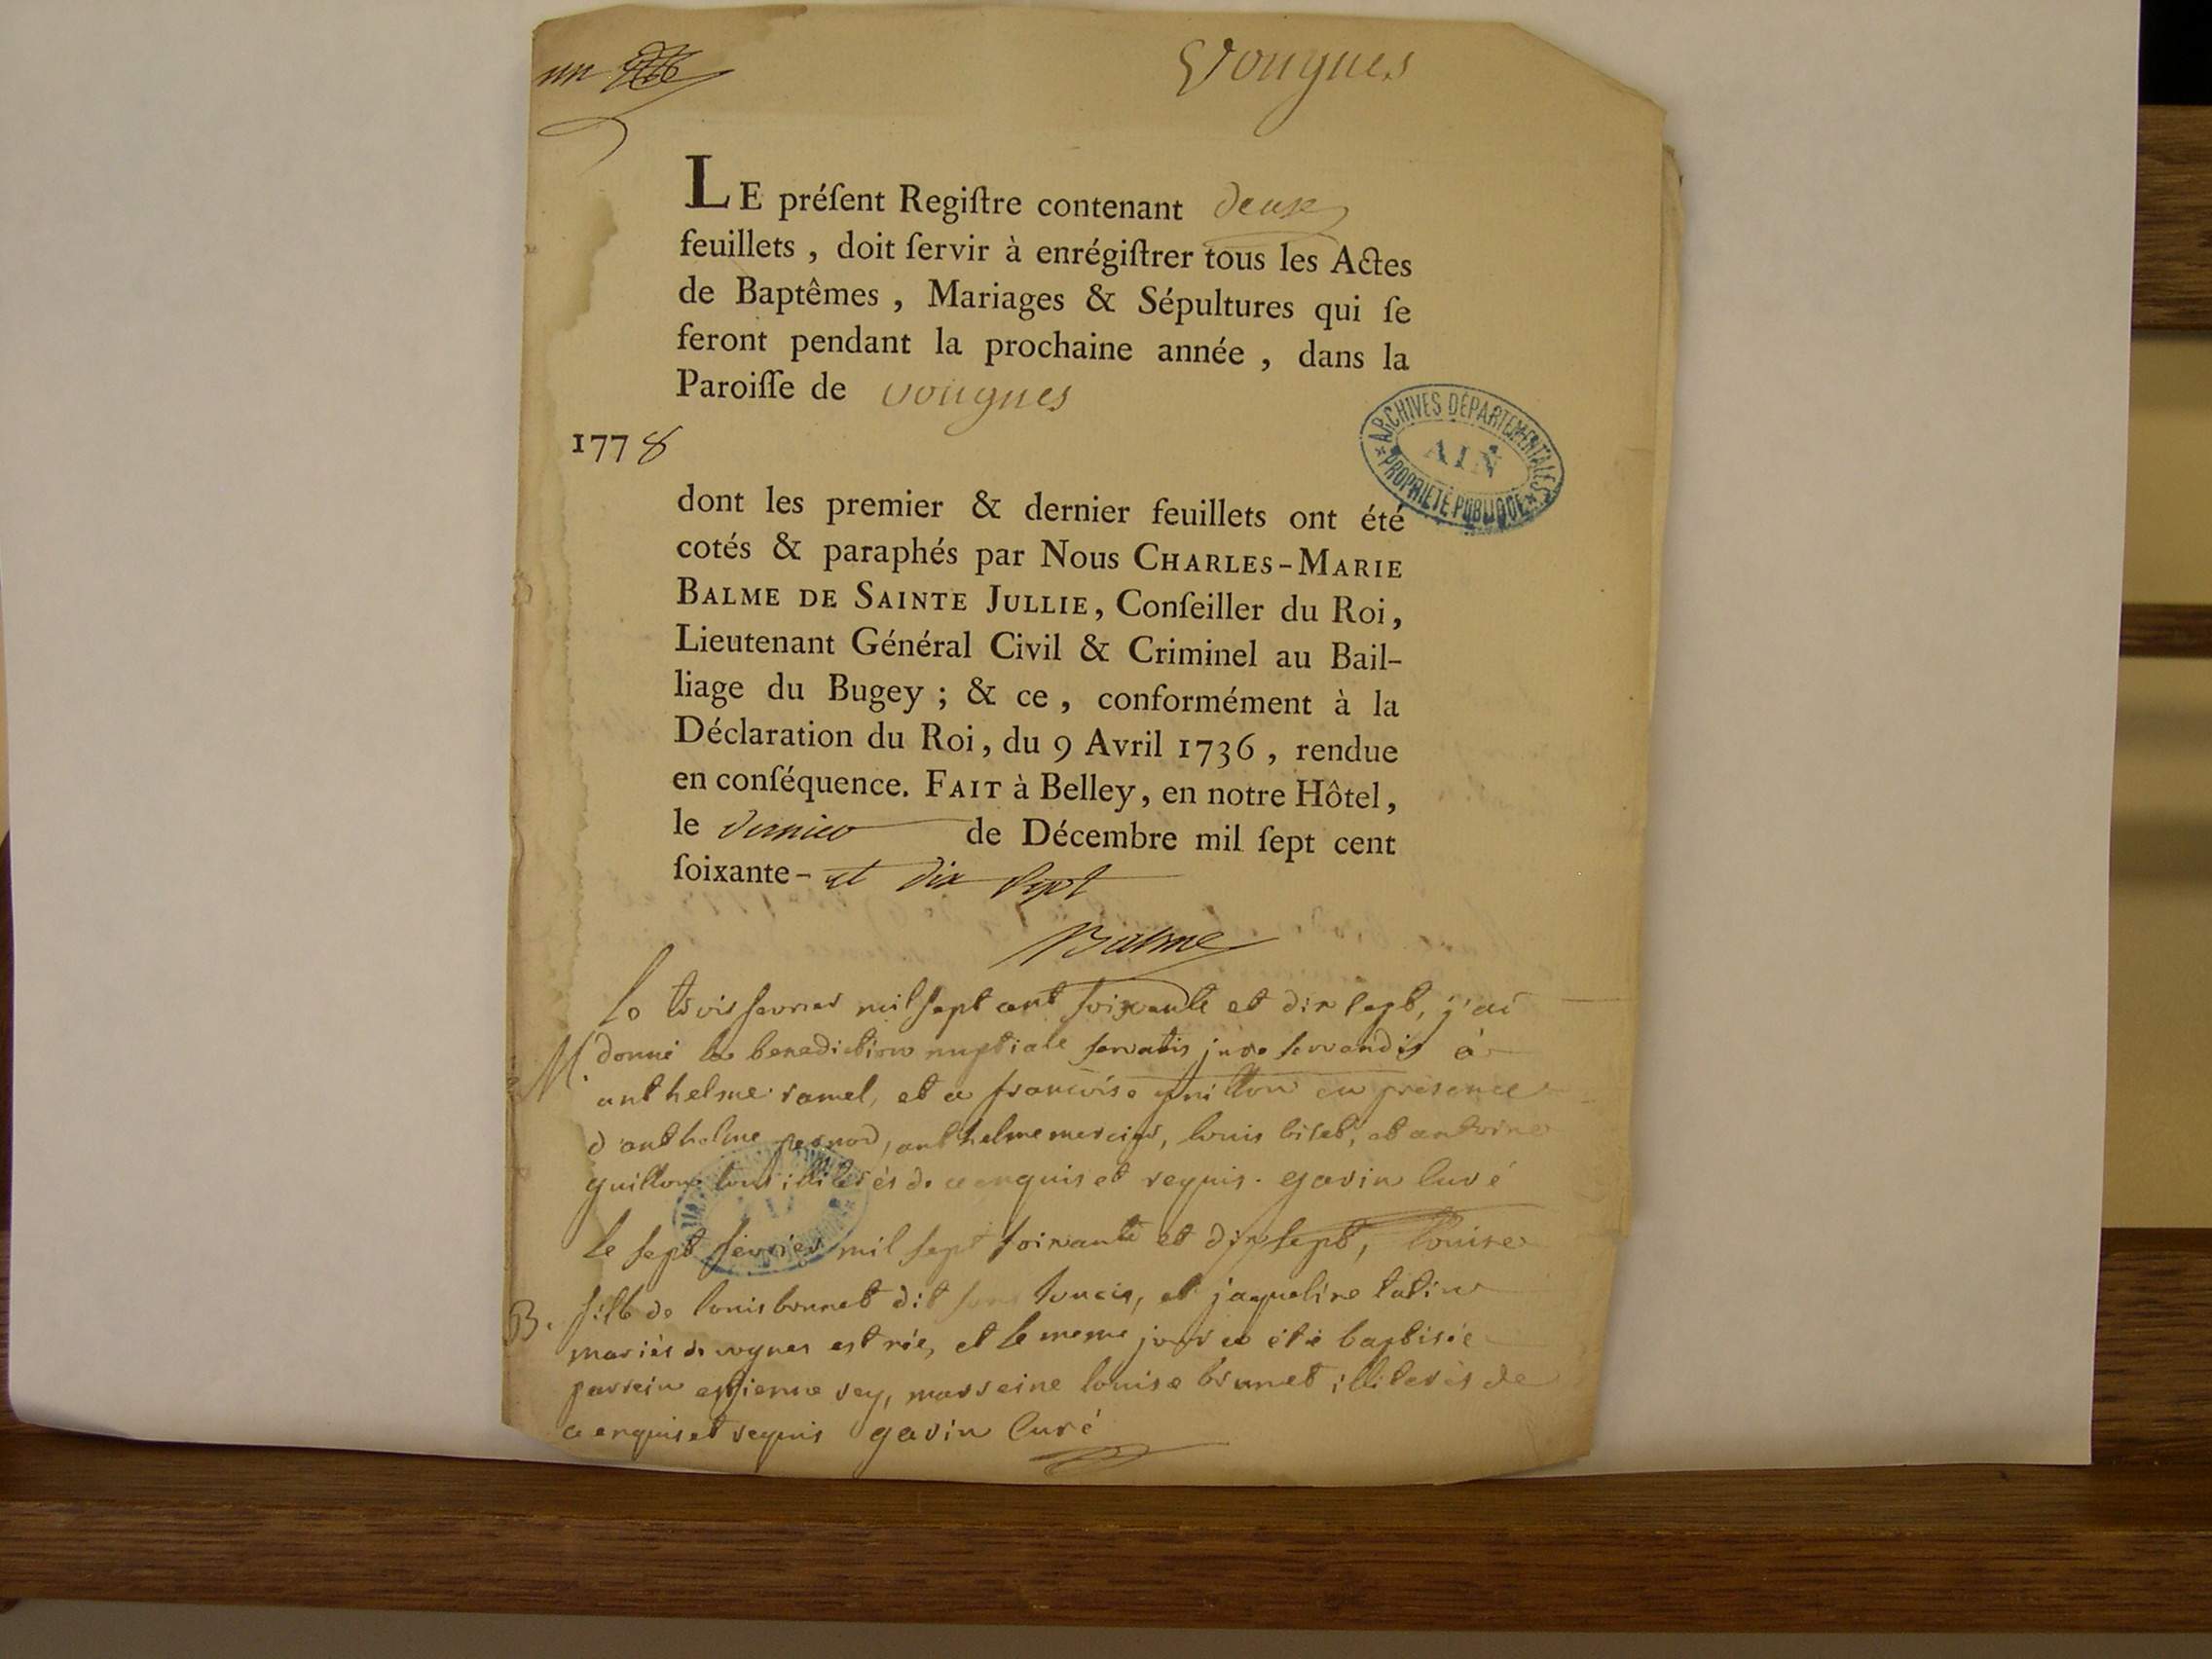 un
Vougnes
LE préſent Regiſtre contenant deux
feuillets , doit ſervir à enrégiſtrer tous les Actes
de Baptêmes , Mariages & Sépultures qui ſe
feront pendant la prochaine année , dans la
Paroiſſe de vougnes
1778
ARCHIVES DÉPARTEMENTALES
AIN
PROPRIÉTÉ PUBLIQUE
dont les premier & dernier feuillets ont été
cotés & paraphés par Nous CHARLES-MARIE
BALME DE SAINTE JULLIE, Conſeiller du Roi,
Lieutenant Général Civil & Criminel au Bail-
liage du Bugey ; & ce , conformément à la
Déclaration du Roi, du 9 Avril 1736 , rendue
en conſéquence. FAIT à Belley, en notre Hôtel,
le dernier de Décembre mil ſept cent
ſoixante- et dix sept
Balme
le trois fevrier mil sept cent soixante et dix sept, j'ai
M. donné la benediction nuptiale servatis jure servandis à
anthelme ramel, et a francoise guillon en presence
d'anthelme pernod, anthelme mercier, louis biset, et antoine
guillon tous illiterés de ce enquis et requis. gavin Curé
le sept fevrier mil sept soixante et dix sept, louise
B. fille de louis brunet dit soucis, et jaqueline tatin
mariés de vognes est née, et le meme jour a été baptisée
parrein estienne rey, marreine louise brunet illiterés de
ce enquis et requis gavin Curé